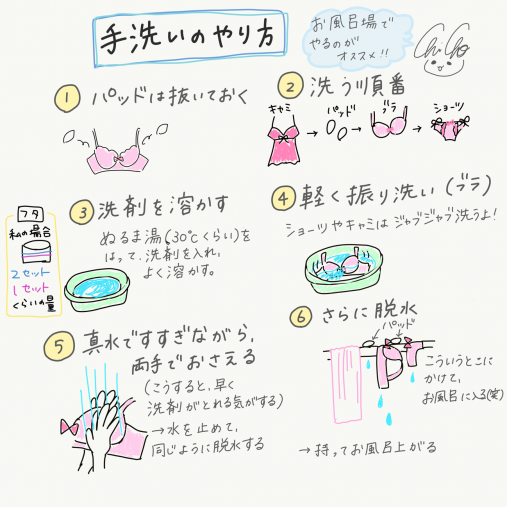 手洗いのやり方
お風呂場で
やるのが
オススメ!!
ChiCho
① パッドは抜いておく
② 洗う順番
キャミ
パッド
ブラ
ショーツ
③ 洗剤を溶かす
ぬるま湯(30℃くらい)を
はって、洗剤を入れ、
よく溶かす。
フタ
私の場合
2セット
1セット
くらいの量
④ 軽く振り洗い(ブラ)
ショーツやキャミはジャブジャブ洗うよ!
⑤ 真水ですすぎながら、
両手でおさえる
(こうすると、早く
洗剤がとれる気がする)
→水を止めて、
同じように脱水する
⑥ さらに脱水
パッド
こういうとこに
かけて、
お風呂に入る(笑)
→持ってお風呂上がる